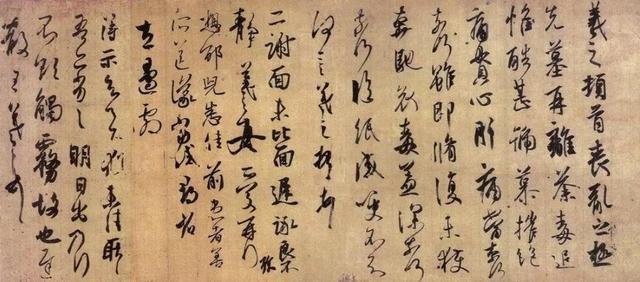 羲之頓首喪亂之極
先墓再離荼毒追
惟酷甚號慕摧絕
痛貫心肝痛當奈何
奈何雖即脩復未獲
奔馳哀毒益深奈何
奈何臨紙感哽不知
何言羲之頓首頓首
二謝面未比面遲詠良不
靜羲之女愛再拜
想邴兒悉佳前患者善
所送議當試尋省
左邊劇
得示知足下猶未佳耿耿
吾亦劣劣明日出乃行
不欲觸霧故也遲
散王羲之頓首